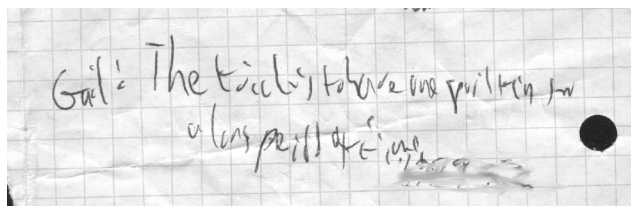 Gail: The trick is to have one put in for
a long period of time